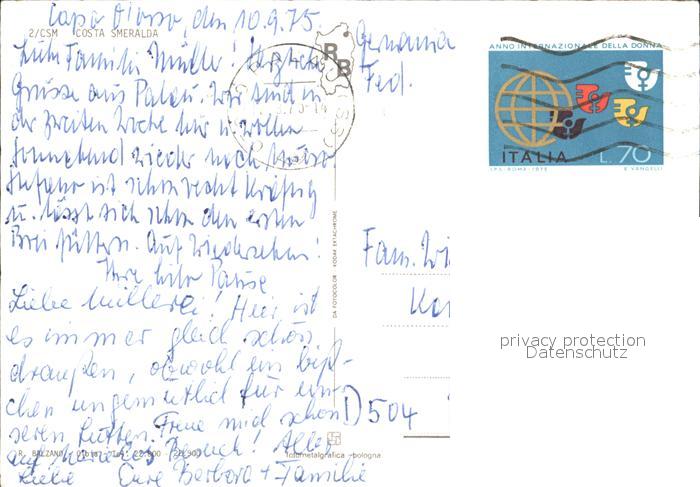 Capo d'Orso, den 10.9.75.
2/CSM COSTA SMERALDA
Liebe Familie Müller! Herzliche
Grüsse aus Palau. Wir sind in
der zweiten Woche hier u. wollen
Sonnabend wieder nach
ist schon recht kräftig
u. lässt sich schon den ersten
Brei füttern. Auf Wiedersehen!
Ihre
Liebe Müllerei! Hier ist
es immer gleich schön
draußen, obwohl ein biß-
chen ungemütlich für un-
seren Lütten. Freue mich schon
auf Besuch! Alles
Liebe Eure Barbara + Familie
R. BALZANO - Olbia
RB
DA FOTOCOLOR KODAK EKTACHROME
Fotometalgrafica - bologna
Germania
Fed.
Fam.
D 504
ANNO INTERNAZIONALE DELLA DONNA
ITALIA L. 70
I.P.S. - ROMA - 1975 E. VANGELLI
privacy protection
Datenschutz